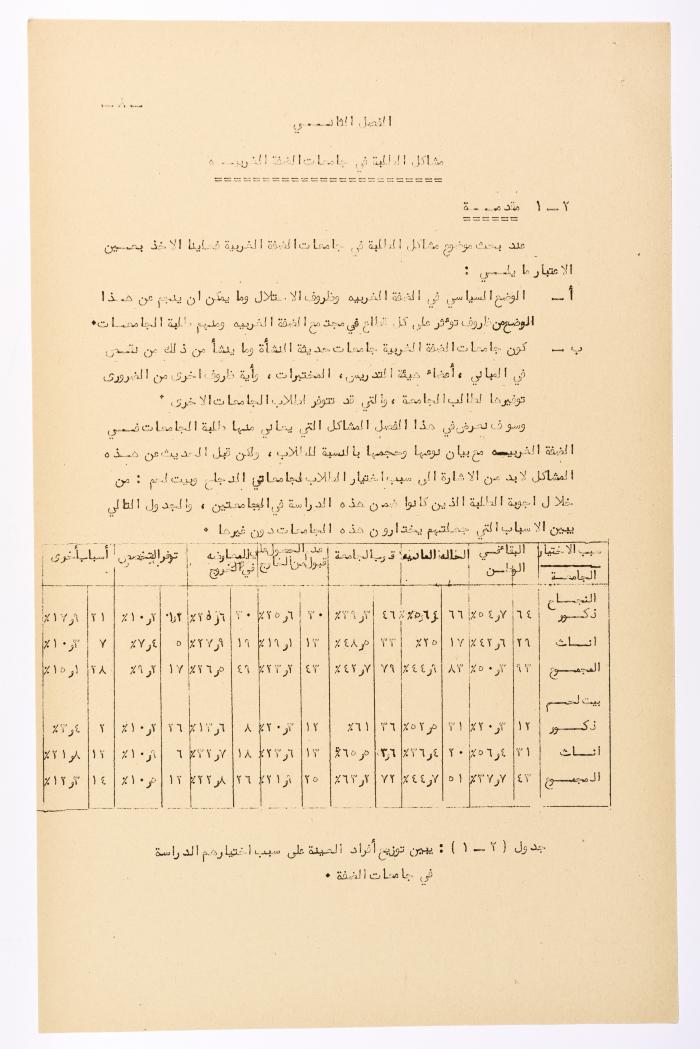 ــ ٨ ــ
الفصل الثانــــي
مشاكل الطلبة في جامعات الضفة الغربيــــه
=========================
٢ ــ ١ مقدمـــــة
عند بحث موضوع مشاكل الطلبة في جامعات الضفة الغربية فعلينا الاخذ بعـــين
الاعتبار ما يلـــــي :
أ ــ الوضع السياسي في الضفة الغربيه وظروف الاحتلال وما يمكن ان ينجم عن هـــذا
الوضع من ظروف تؤثر على كل قطاع في مجتمع الضفة الغربيه ومنهم طلبة الجامعـــات.
ب ــ كون جامعات الضفة الغربية جامعات حديثة النشأة وما ينشأ من ذلك من نقـــص
في المباني ، أعضاء هيئة التدريس، المختبرات ، وأية ظروف اخرى من الضرورى
توفيرها لطالب الجامعة ، والتي قد تتوفر لطلاب الجامعات الاخرى .
وسوف نعرض في هذا الفصل المشاكل التي يعاني منها طلبة الجامعات فـــي
الضفة الغربيــــه مع بيان نوعها وحجمها بالنسبة للطلاب ، ولكن قبل الحديث عن هـــذه
المشاكل لابد من الاشارة الى سبب اختيار الطلاب لجامعاتي النجاح وبيت لحم : من
خلال اجوبة الطلبة الذين كانوا ضمن هذه الدراسة في الجامعتين ، والجدول التالي
يبين الاسباب التي جعلتهم يختارون هذه الجامعات دون غيرها .
سبب الاختيار البقاء في الوطن الحاله الماديه قرب الجامعة عدم الحصول على قبول من الخارج في الخروج توفر التخصص أسباب أخرى
الجامعة
النجـــاح
ذكــور ٦٤ ٧ر٥٤٪ ٦٦ ٤ر٥٦٪ ٤٦ ٣ر٣٩٪ ٣٠ ٦ر٢٥٪ ٣٠ ٦ر٢٥٪ ١٢ ٢ر١٠٪ ٢١ ٩ر١٧٪
انــاث ٢٩ ٦ر٤٢٪ ١٧ ٢٥٪ ٣٣ ٥ر٤٨٪ ١٣ ١ر١٩٪ ١٩ ٩ر٢٧٪ ٥ ٤ر٧٪ ٧ ٣ر١٠٪
المجمــوع ٩٣ ٣ر٥٠٪ ٨٣ ٩ر٤٤٪ ٧٩ ٧ر٤٢٪ ٤٣ ٢ر٢٣٪ ٤٩ ٥ر٢٦٪ ١٧ ٢ر٩٪ ٢٨ ١ر١٥٪
بيت لحــم
ذكــور ١٢ ٣ر٢٠٪ ٣١ ٥ر٥٢٪ ٣٦ ٦١٪ ١٢ ٣ر٢٠٪ ٨ ٦ر١٣٪ ٢٦ ٢ر١٠٪ ٢ ٤ر٣٪
أنــاث ٣١ ٤ر٥٦٪ ٢٠ ٤ر٣٦٪ ٣٦ ٥ر٦٥٪ ١٣ ٦ر٢٣٪ ١٨ ٧ر٣٢٪ ٦ ٩ر١٠٪ ١٢ ٨ر٢١٪
المجمــوع ٤٣ ٧ر٣٧٪ ٥١ ٧ر٤٤٪ ٧٢ ٢ر٦٣٪ ٢٥ ٩ر٢١٪ ٢٦ ٨ر٢٢٪ ١٢ ٥ر١٠٪ ١٤ ٣ر١٢٪
جدول ( ٢ ــ ١ ) : يبين توزيع أفراد العينة على سبب اختيارهم الدراسة
في جامعات الضفة .